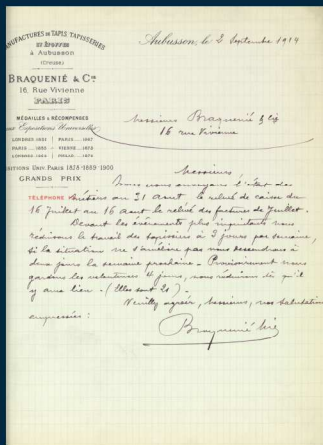 MANUFACTURES DE TAPIS, TAPISSERIES
ET ÉTOFFES
à Aubusson
(CREUSE)
BRAQUENIÉ & Cie
16, Rue Vivienne
PARIS
MÉDAILLES & RÉCOMPENSES
aux Expositions Universelles
LONDRES 1851 | PARIS 1867
PARIS 1855 | VIENNE 1873
LONDRES 1862 | PHILAD. 1876
EXPOSITIONS UNIV. PARIS 1878-1889-1900
GRANDS PRIX
TÉLÉPHONE
Aubusson, le 2 Septembre 1914
Messieurs Braquenié & Cie
16 rue Vivienne
Messieurs
Nous vous envoyons l'état des
métiers au 21 août le relevé de caisse du
16 Juillet au 16 août le relevé des factures de Juillet.
Devant les événements plus inquiétants nous
réduisons le travail des tapissiers à 3 jours par semaine,
si la situation ne s'améliore pas nous descendrons à
deux jours la semaine prochaine. - Provisoirement nous
gardons les volontaires 4 jours, nous réduirons dès qu'il
y aura lieu - (Elles sont 21) -
Veuillez agréer, Messieurs, nos salutations
empressées :
Braquenié & Cie